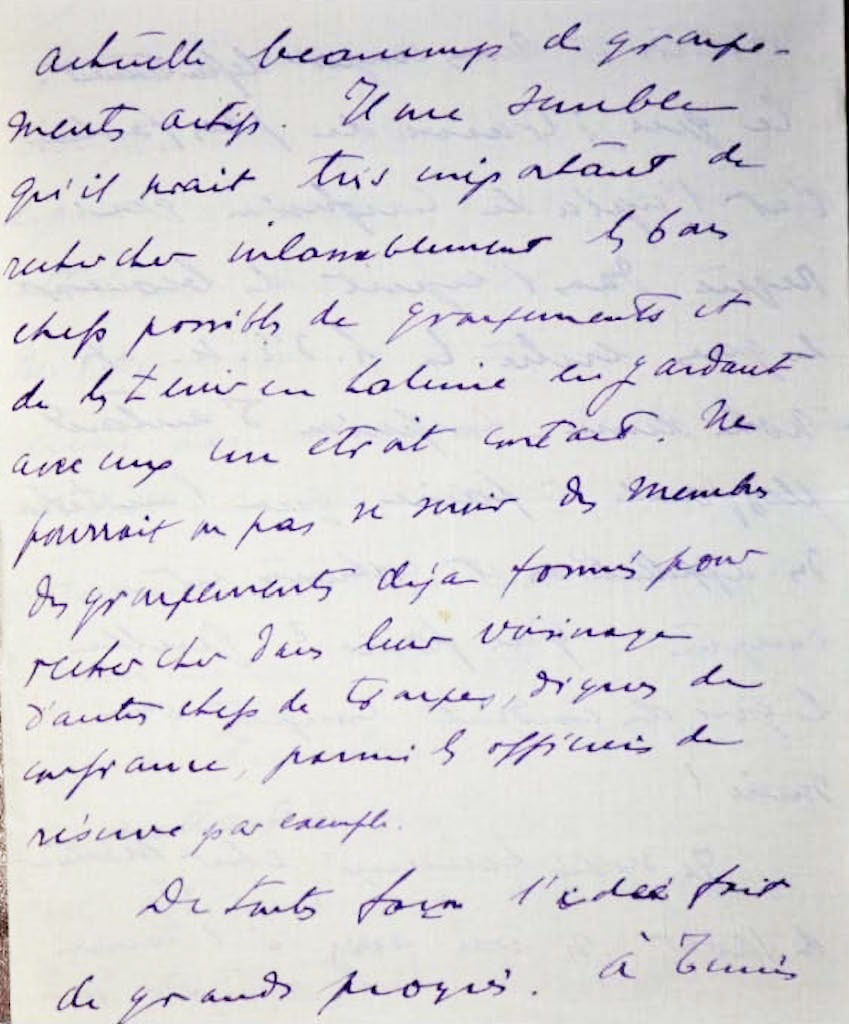 actuelle beaucoup de groupe-
ments actifs. Il me semble
qu'il serait très important de
rechercher inlassablement les bons
chefs possibles de groupements et
de les tenir en haleine en gardant
avec eux un étroit contact. Ne
pourrait on pas se servir des membres
des groupements déjà formés pour
rechercher dans leur voisinage
d'autres chefs de groupes, dignes de
confiance, parmi les officiers de
réserve par exemple.
De toutes façon l'idée fait
de grands progrès. à Tunis